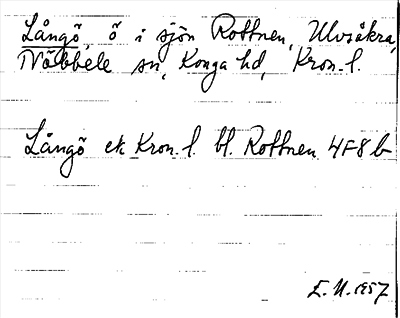 Långö, ö i sjön Rottnen, Ulvsåkra,
Näbbele sn, Konga hd, Kron. l.
Långö ek Kron. l. bl. Rottnen 4F8b
E.N. 1957